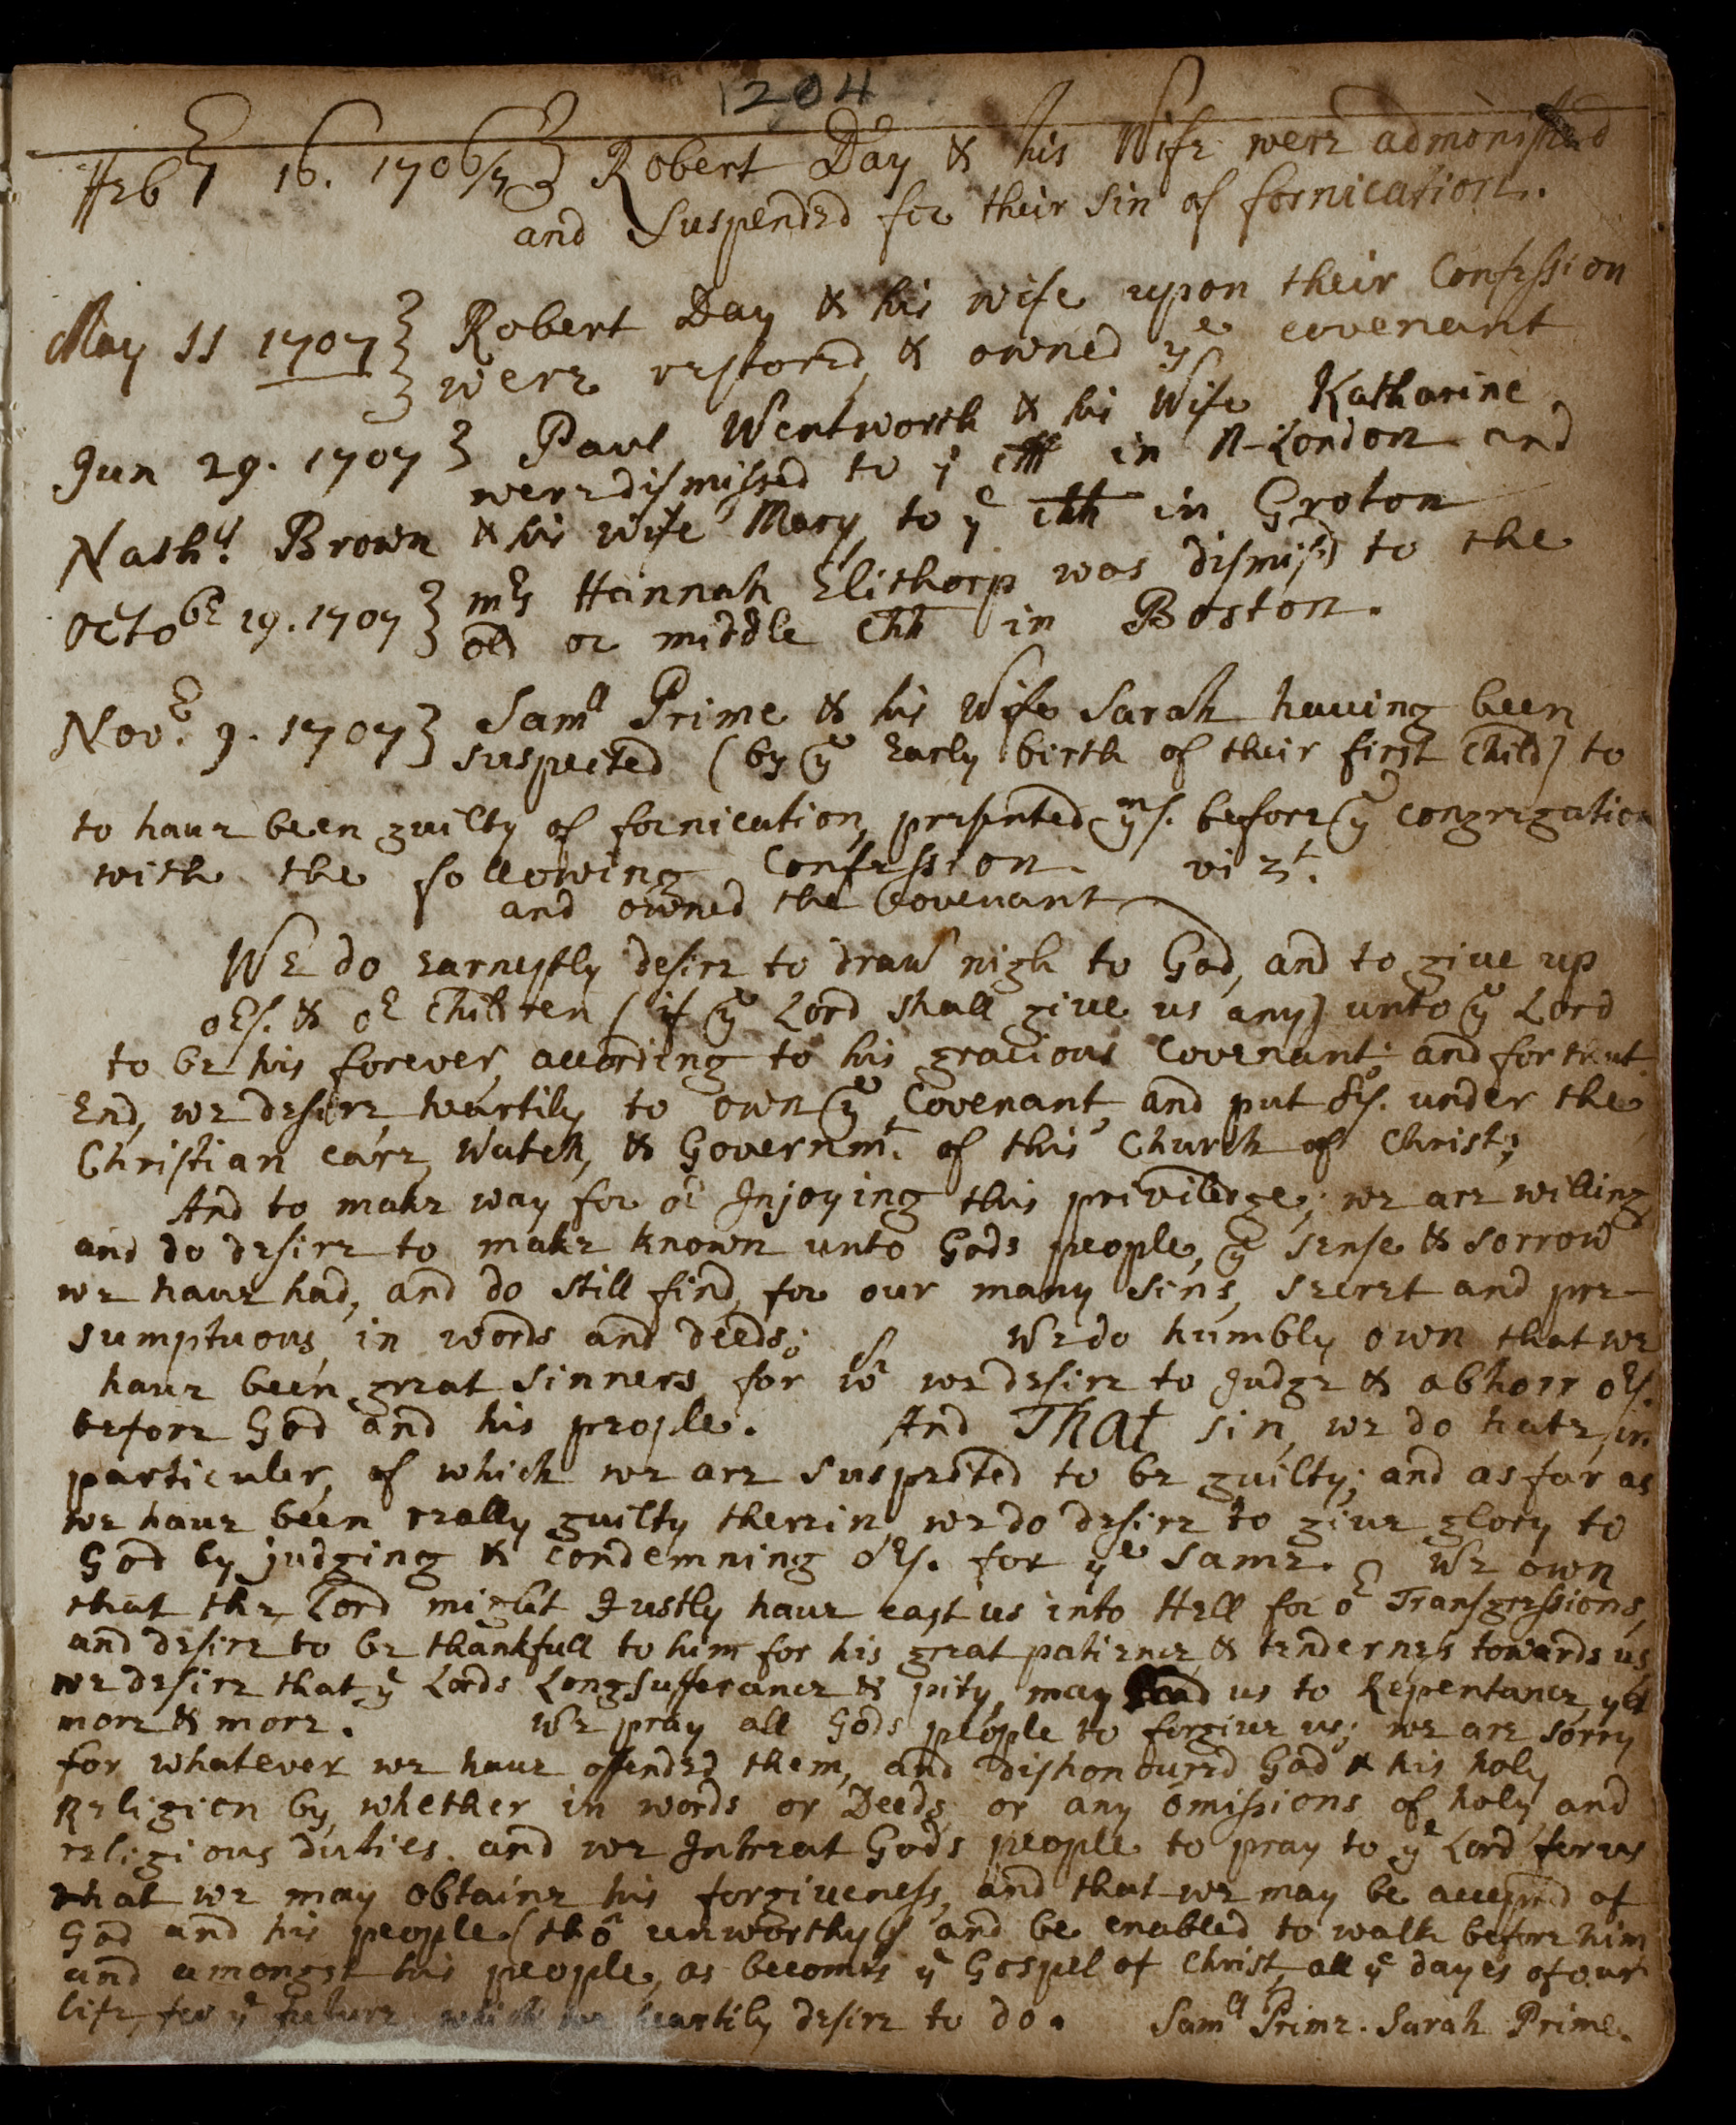 204
Febry 16. 1706/7 } Robert Day & his Wife were admonished
and suspended for their sin of fornication.
May 11 1707 } Robert Day & his wife upon their Confession
were restored, & owned ye covenant
Jun 29. 1707 } Paul Wentworth & his Wife Katharine
were dismissed to ye chh in N-London and
Nathll Brown & his wife Mary, to ye chh in Groton
Octobr 19. 1707 } mrs Hannah Elithorp was dismisd to the
old or middle chh in Boston.
Novr. 9. 1707 } Samll Prime & his Wife Sarah having been
suspected (by ye Early birth of their first Child) to
to have been guilty of fornication, presented yms. before ye congregation
with the following Confession. vizt.
and owned the Covenant
We do earnestly desire to draw nigh to God, and to give up
ors. & or Children (if ye Lord shall give us any) unto ye Lord
to be his forever, according to his gracious Covenant: and for that
End, we desire heartily to own ye Covenant, and put ors. under the
Christian care, Watch, & Governmt. of this Church of Christ;
And to make way for or Injoying this priviledge; we are willing
and do desire to make known unto Gods people, ye sense & sorrow
we have had, and do still find, for our many sins, secret and pre-
sumptuous, in words and deeds; We do humbly own that we
have been great sinners, for wch we desire to Judge & abhorr ors.
before God and his people. And That sin, we do hate, in
particuler, of which we are suspected to be guilty; and as far as
we have been really guilty therein, we do desire to give glory to
God by judging & condemning ors. for ye same. We own
that the Lord might Justly have cast us into Hell for or Transgressions,
and desire to be thankfull to him for his great patience & tenderness towards us
we desire that ye Lords Longsufferance & pity, may lead us to Repentance, yet
more & more. We pray all Gods people to forgive us; we are sorry
for whatever we have offended them, and dishonoured God & his holy
Religion by, whether in words or Deeds, or any omissions of holy and
religious duties. and we Intreat Gods people to pray to ye Lord for us
that we may obtaine his forgiveness, and that we may be accepted of
God and his people (tho unworthy) and be enabled to walk before him
and amongst his people, as becomes ye Gospel of Christ, all ye dayes of our
life, for ye future which we heartily desire to do. Samll Prime. Sarah Prime.